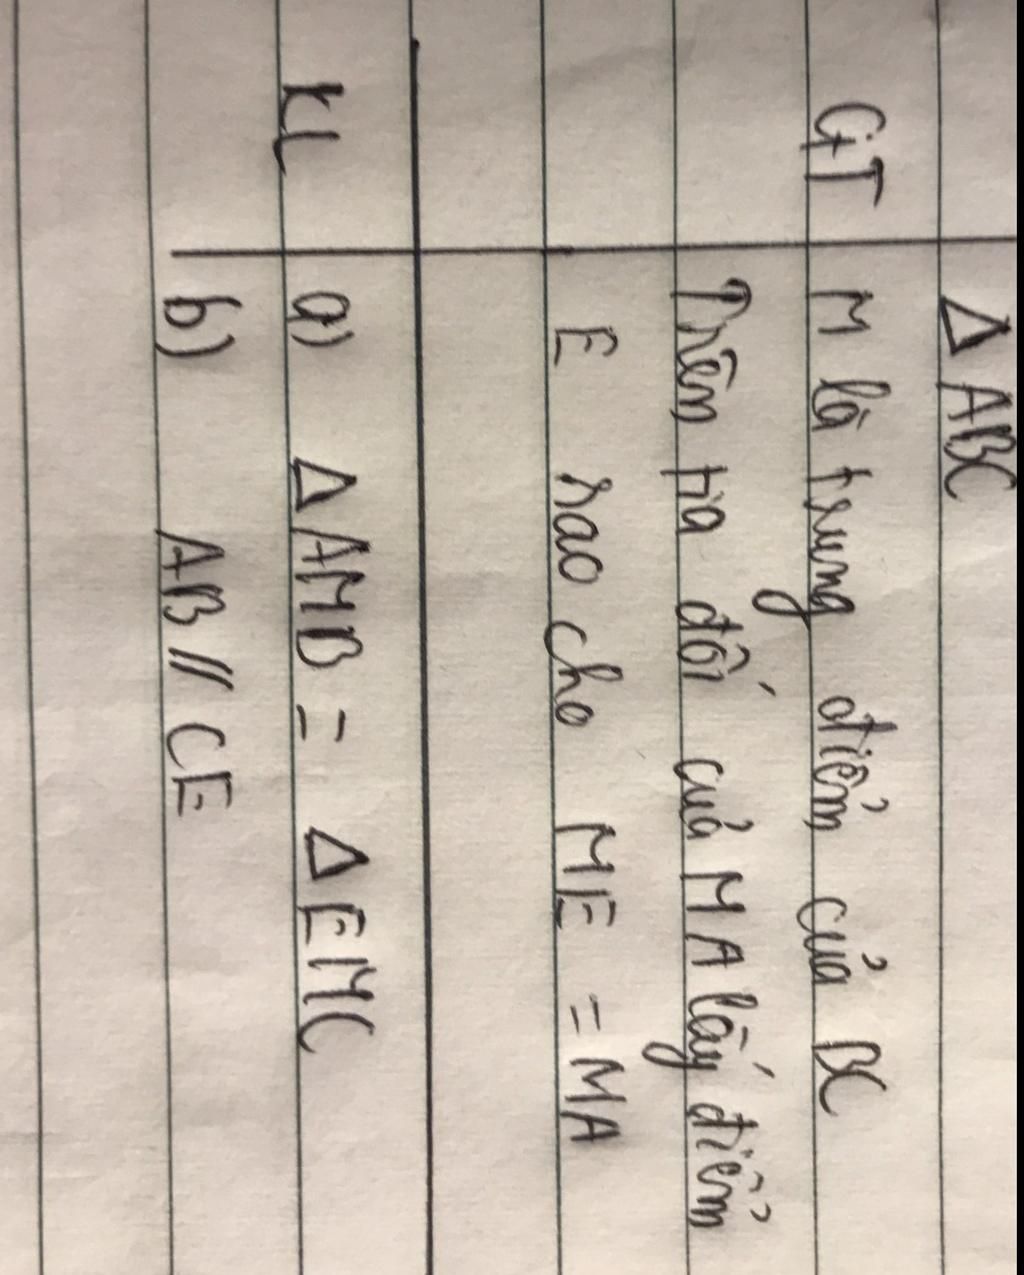 Δ ABC
GT M là trung điểm của BC
Trên tia đối của MA lấy điểm
E sao cho ME = MA
KL a) Δ AMB = Δ EMC
b) AB // CE